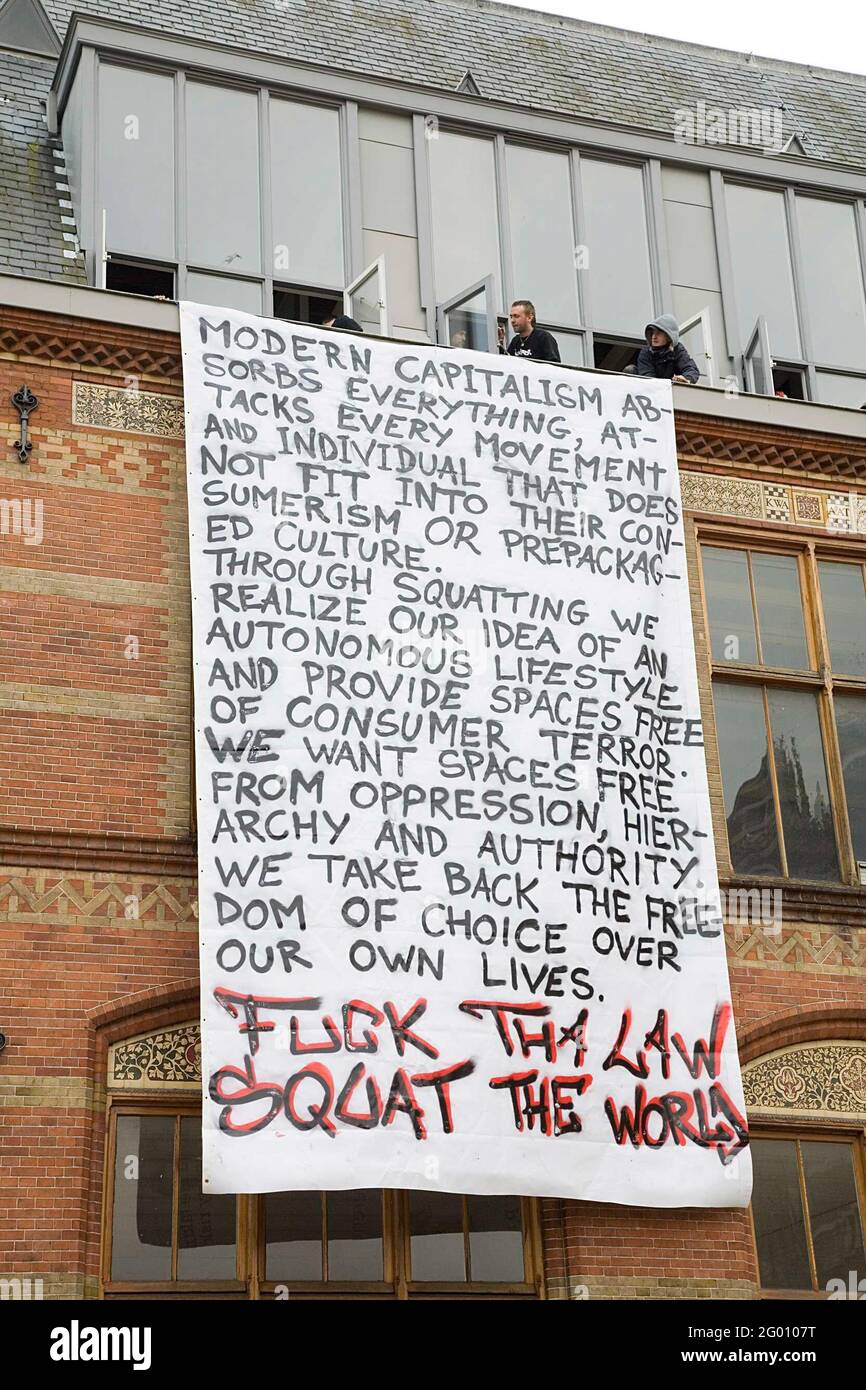 MODERN CAPITALISM AB-
SORBS EVERYTHING, AT-
TACKS EVERY MOVEMENT
AND INDIVIDUAL THAT DOES
NOT FIT INTO THEIR CON-
SUMERISM OR PREPACKAG-
ED CULTURE.
THROUGH SQUATTING WE
REALIZE OUR IDEA OF AN
AUTONOMOUS LIFESTYLE
AND PROVIDE SPACES FREE
OF CONSUMER TERROR.
WE WANT SPACES FREE
FROM OPPRESSION, HIER-
ARCHY AND AUTHORITY.
WE TAKE BACK THE FREE-
DOM OF CHOICE OVER
OUR OWN LIVES.
FUCK THA LAW
SQUAT THE WORLD
KWA
alamy
a
alamy
Image ID: 2G0107T
www.alamy.com